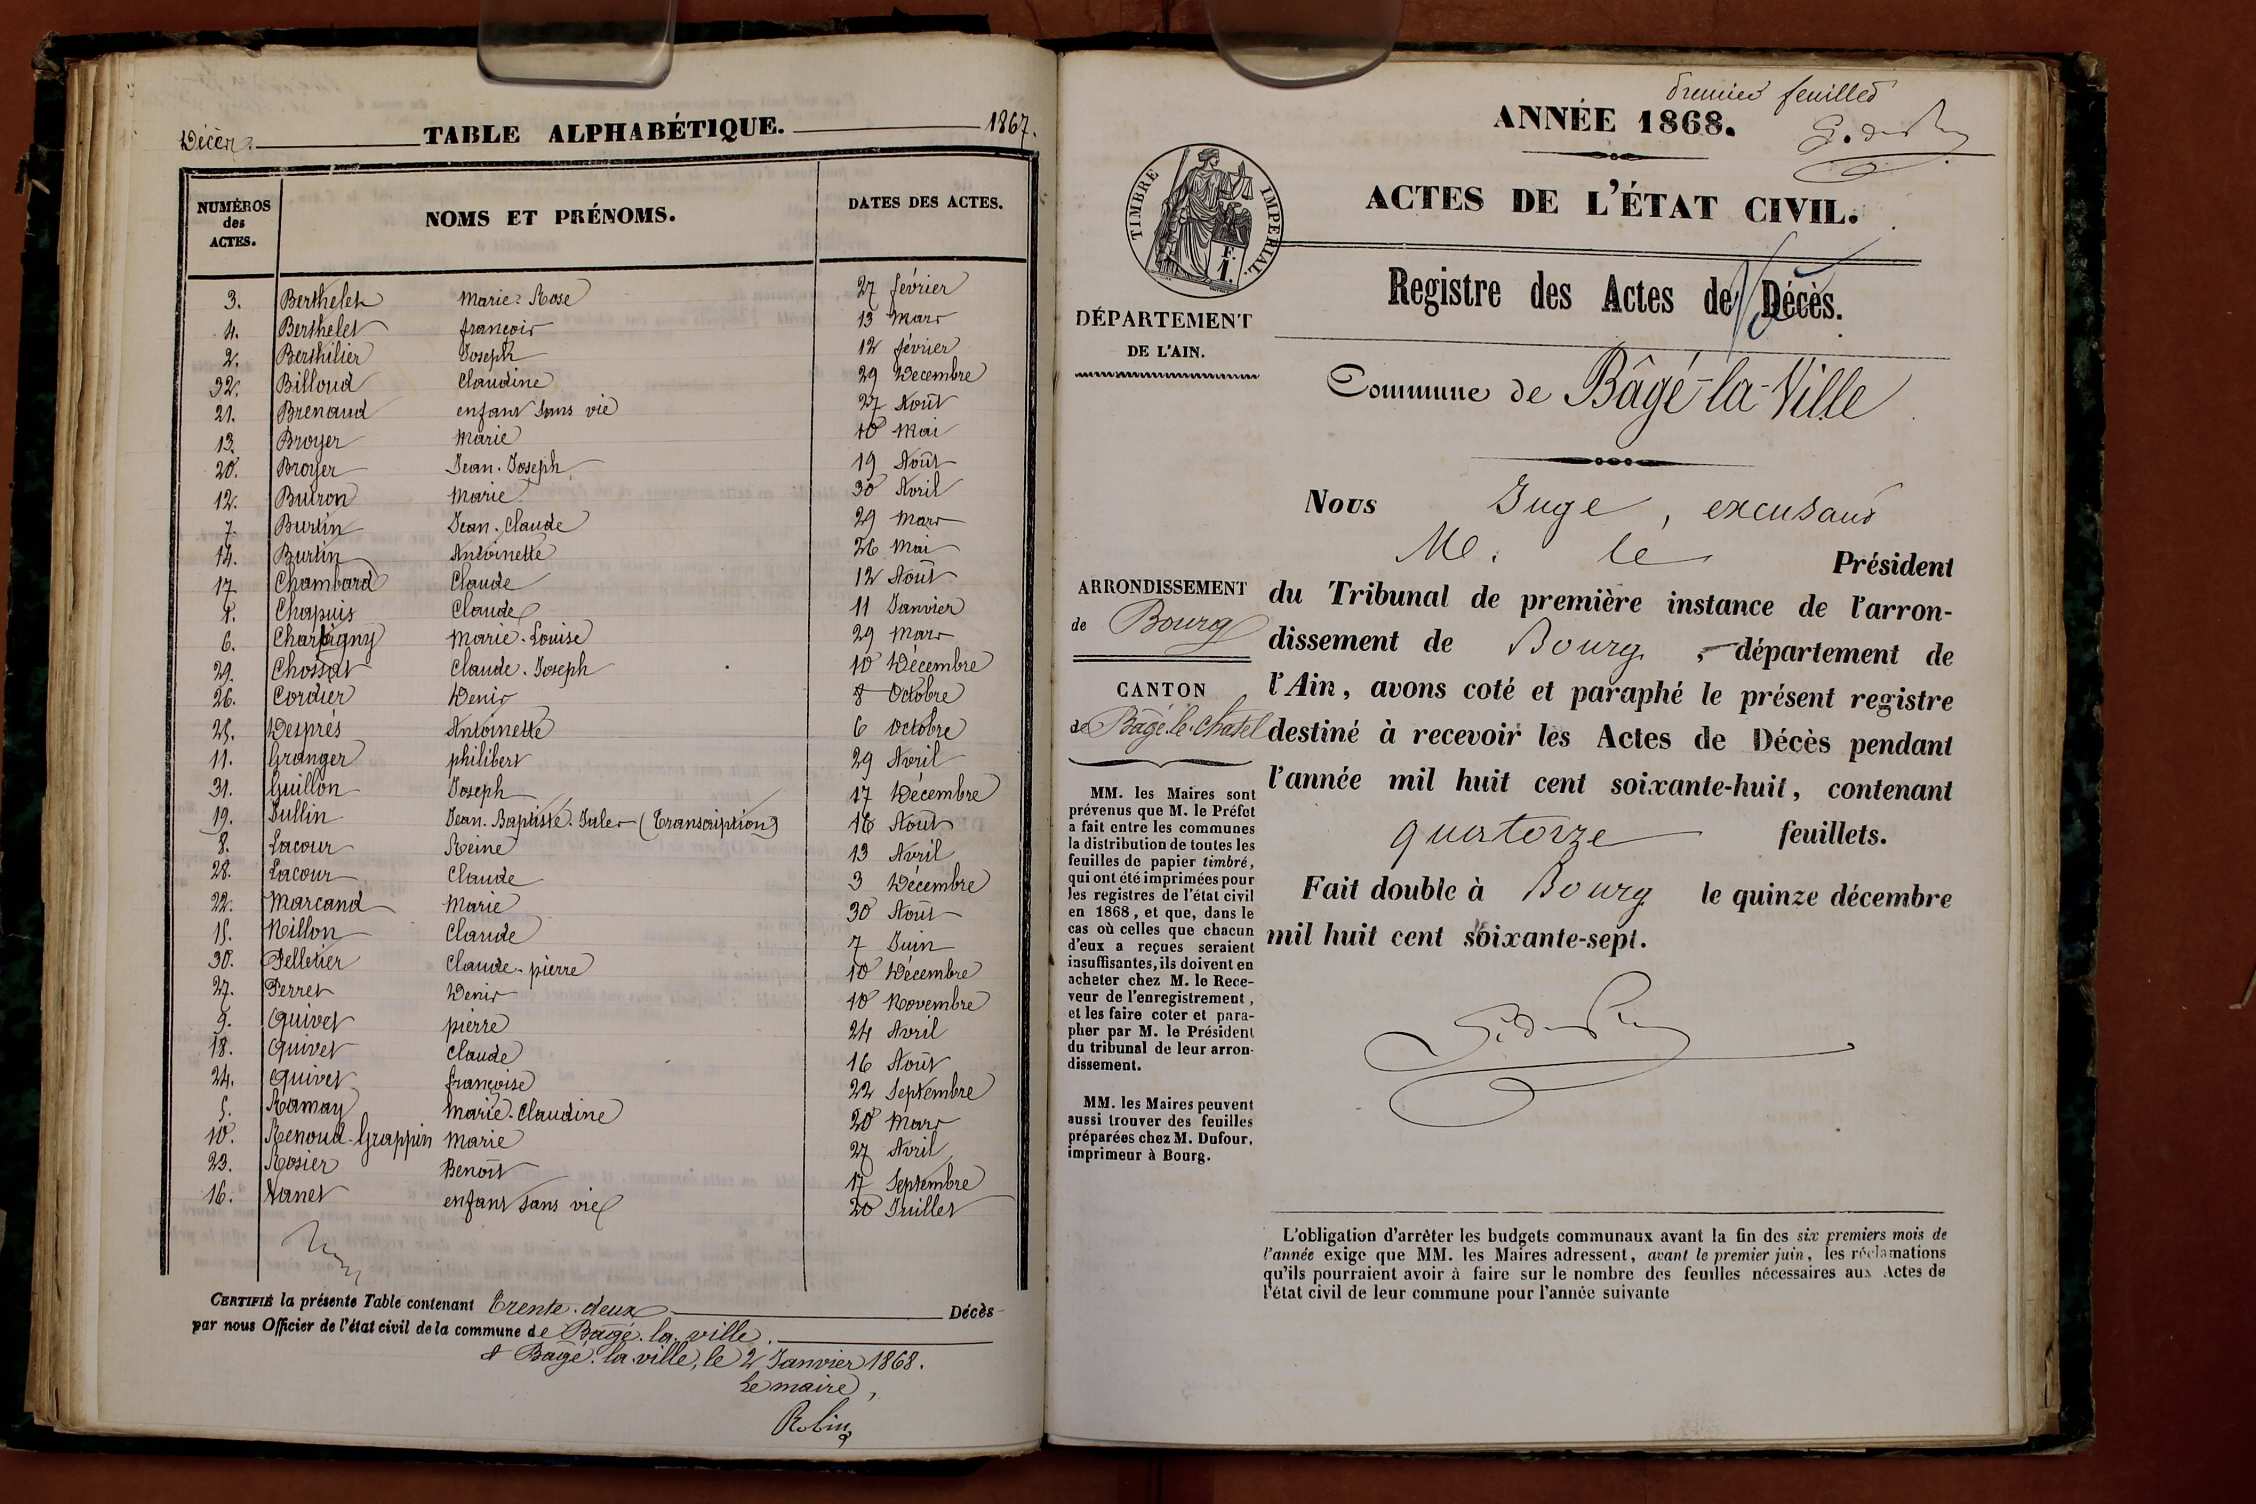 Décès. TABLE ALPHABÉTIQUE. 1867.
NUMÉROS des ACTES. NOMS ET PRÉNOMS. DATES DES ACTES.
3. Berthelet Marie-Rose 27 février
4. Berthelet françois 13 Mars
2. Berthilier Joseph 12 février
32. Billoud Claudine 29 Décembre
21. Brenaud enfant sans vie 27 Août
13. Broyer Marie 10 Mai
20. Broyer Jean-Joseph 19 Août
12. Buiron Marie 30 Avril
7. Burtin Jean-Claude 29 Mars
14. Burtin Antoinette 26 Mai
17. Chambard Claude 12 Août
1. Chapuis Claude 11 Janvier
6. Charvigny Marie-Louise 29 Mars
29. Chossat Claude-Joseph 10 Décembre
26. Cordier Denis 8 Octobre
25. Desprès Antoinette 6 Octobre
11. Granger philibert 29 Avril
31. Guillon Joseph 17 Décembre
19. Jullin Jean-Baptiste-Jules (Transcription) 16 Août
8. Lacour Reine 13 Avril
28. Lacour Claude 3 Décembre
22. Marcand Marie 30 Août
15. Nillon Claude 7 Juin
30. Pelletier Claude-pierre 10 Décembre
27. Perret Denis 10 Novembre
9. Quivet pierre 24 Avril
18. Quivet Claude 16 Août
24. Quivet françoise 22 Septembre
5. Ramay Marie-Claudine 20 Mars
10. Renoud-Grappin Marie 27 Avril
23. Rosier Benoît 17 Septembre
16. Vanet enfant sans vie 20 Juillet
CERTIFIÉ la présente Table contenant Trente-deux Décès
par nous Officier de l'état civil de la commune de Bâgé-la-ville.
à Bâgé-la-ville, le 2 Janvier 1868.
Le maire,
Robin
Premier feuillet
ANNÉE 1868.
ACTES DE L'ÉTAT CIVIL.
TIMBRE IMPÉRIAL.
F. 1.
Registre des Actes de Décès.
DÉPARTEMENT
DE L'AIN.
Commune de Bâgé-la-Ville
ARRONDISSEMENT
de Bourg
CANTON
de Bâgé-le-Chatel
MM. les Maires sont
prévenus que M. le Préfet
a fait entre les communes
la distribution de toutes les
feuilles de papier timbré,
qui ont été imprimées pour
les registres de l'état civil
en 1868, et que, dans le
cas où celles que chacun
d'eux a reçues seraient
insuffisantes, ils doivent en
acheter chez M. le Rece-
veur de l'enregistrement,
et les faire coter et para-
pher par M. le Président
du tribunal de leur arron-
dissement.
MM. les Maires peuvent
aussi trouver des feuilles
préparées chez M. Dufour,
imprimeur à Bourg.
Nous Juge, excusant
M. le Président
du Tribunal de première instance de l'arron-
dissement de Bourg, département de
l'Ain, avons coté et paraphé le présent registre
destiné à recevoir les Actes de Décès pendant
l'année mil huit cent soixante-huit, contenant
quatorze feuillets.
Fait double à Bourg le quinze décembre
mil huit cent soixante-sept.
L'obligation d'arrêter les budgets communaux avant la fin des six premiers mois de
l'année exige que MM. les Maires adressent, avant le premier juin, les réclamations
qu'ils pourraient avoir à faire sur le nombre des feuilles nécessaires aux Actes de
l'état civil de leur commune pour l'année suivante